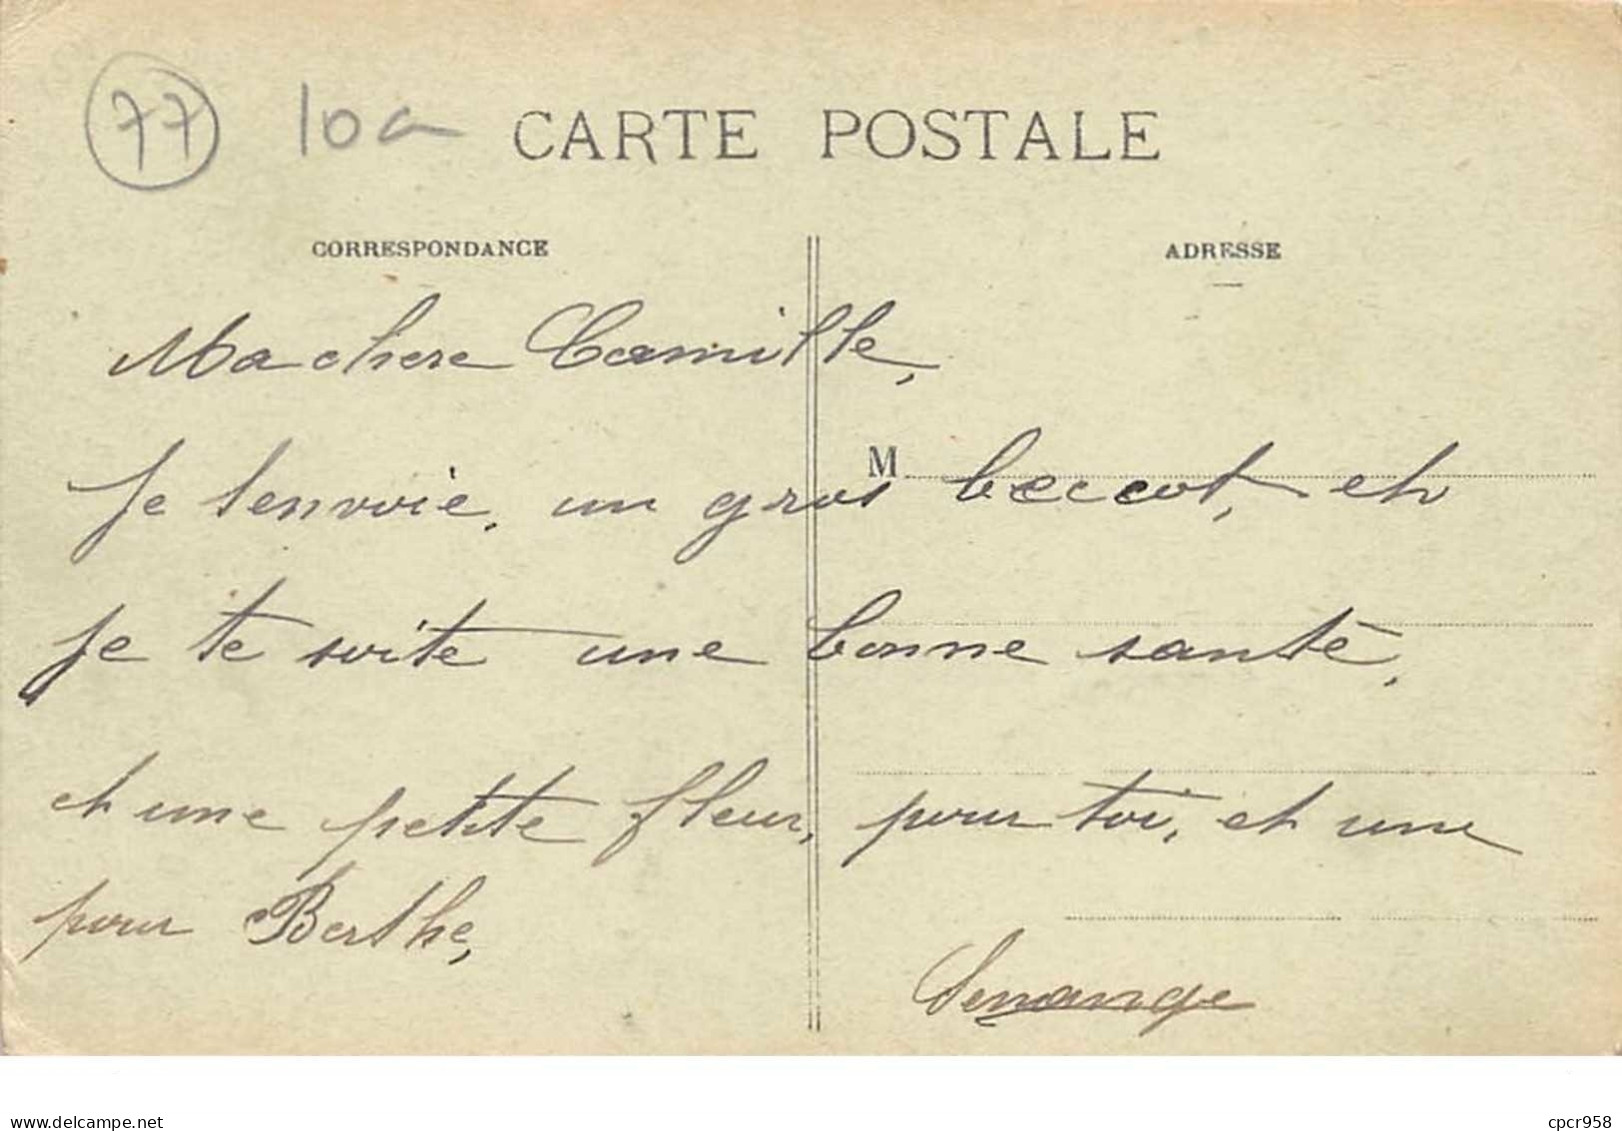 77 10a
CARTE POSTALE
CORRESPONDANCE
ADRESSE
Ma chere Camille,
M
Je tenvoie, un gros beccot, et
je te soite une bonne santé,
et une petite fleur, pour toi, et une
pour Berthe,
delcampe.net
cpcr958